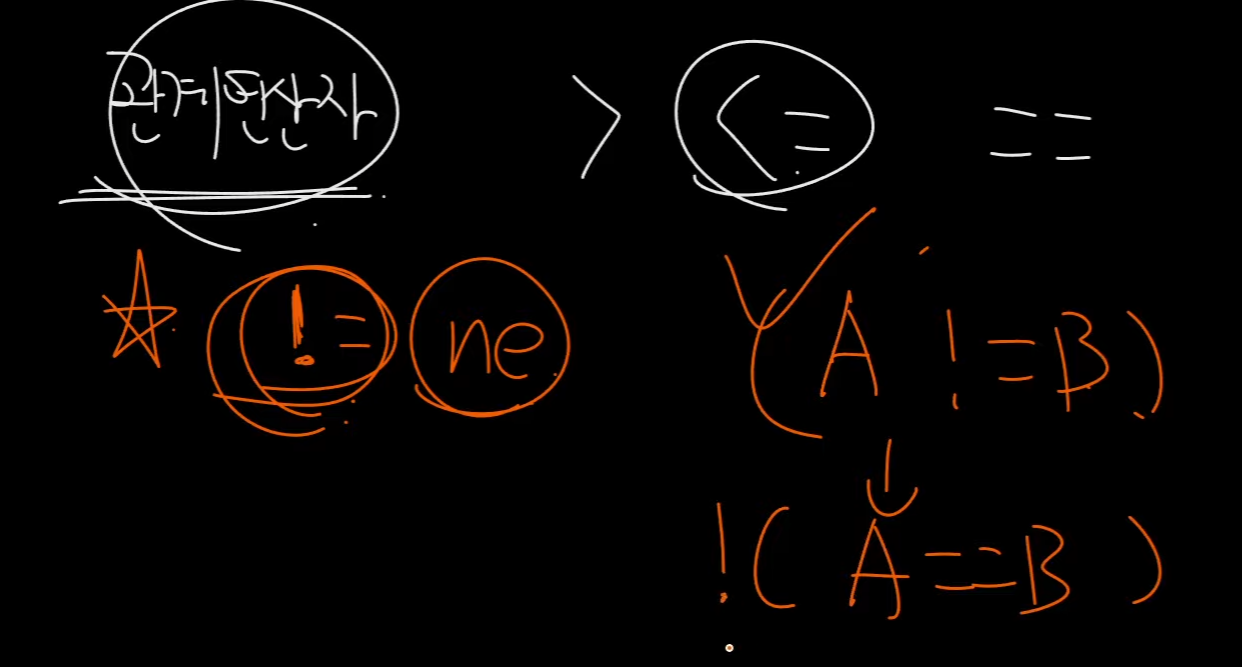 관계연산자 > <= ==
!= ne (A != B)
!( A == B )